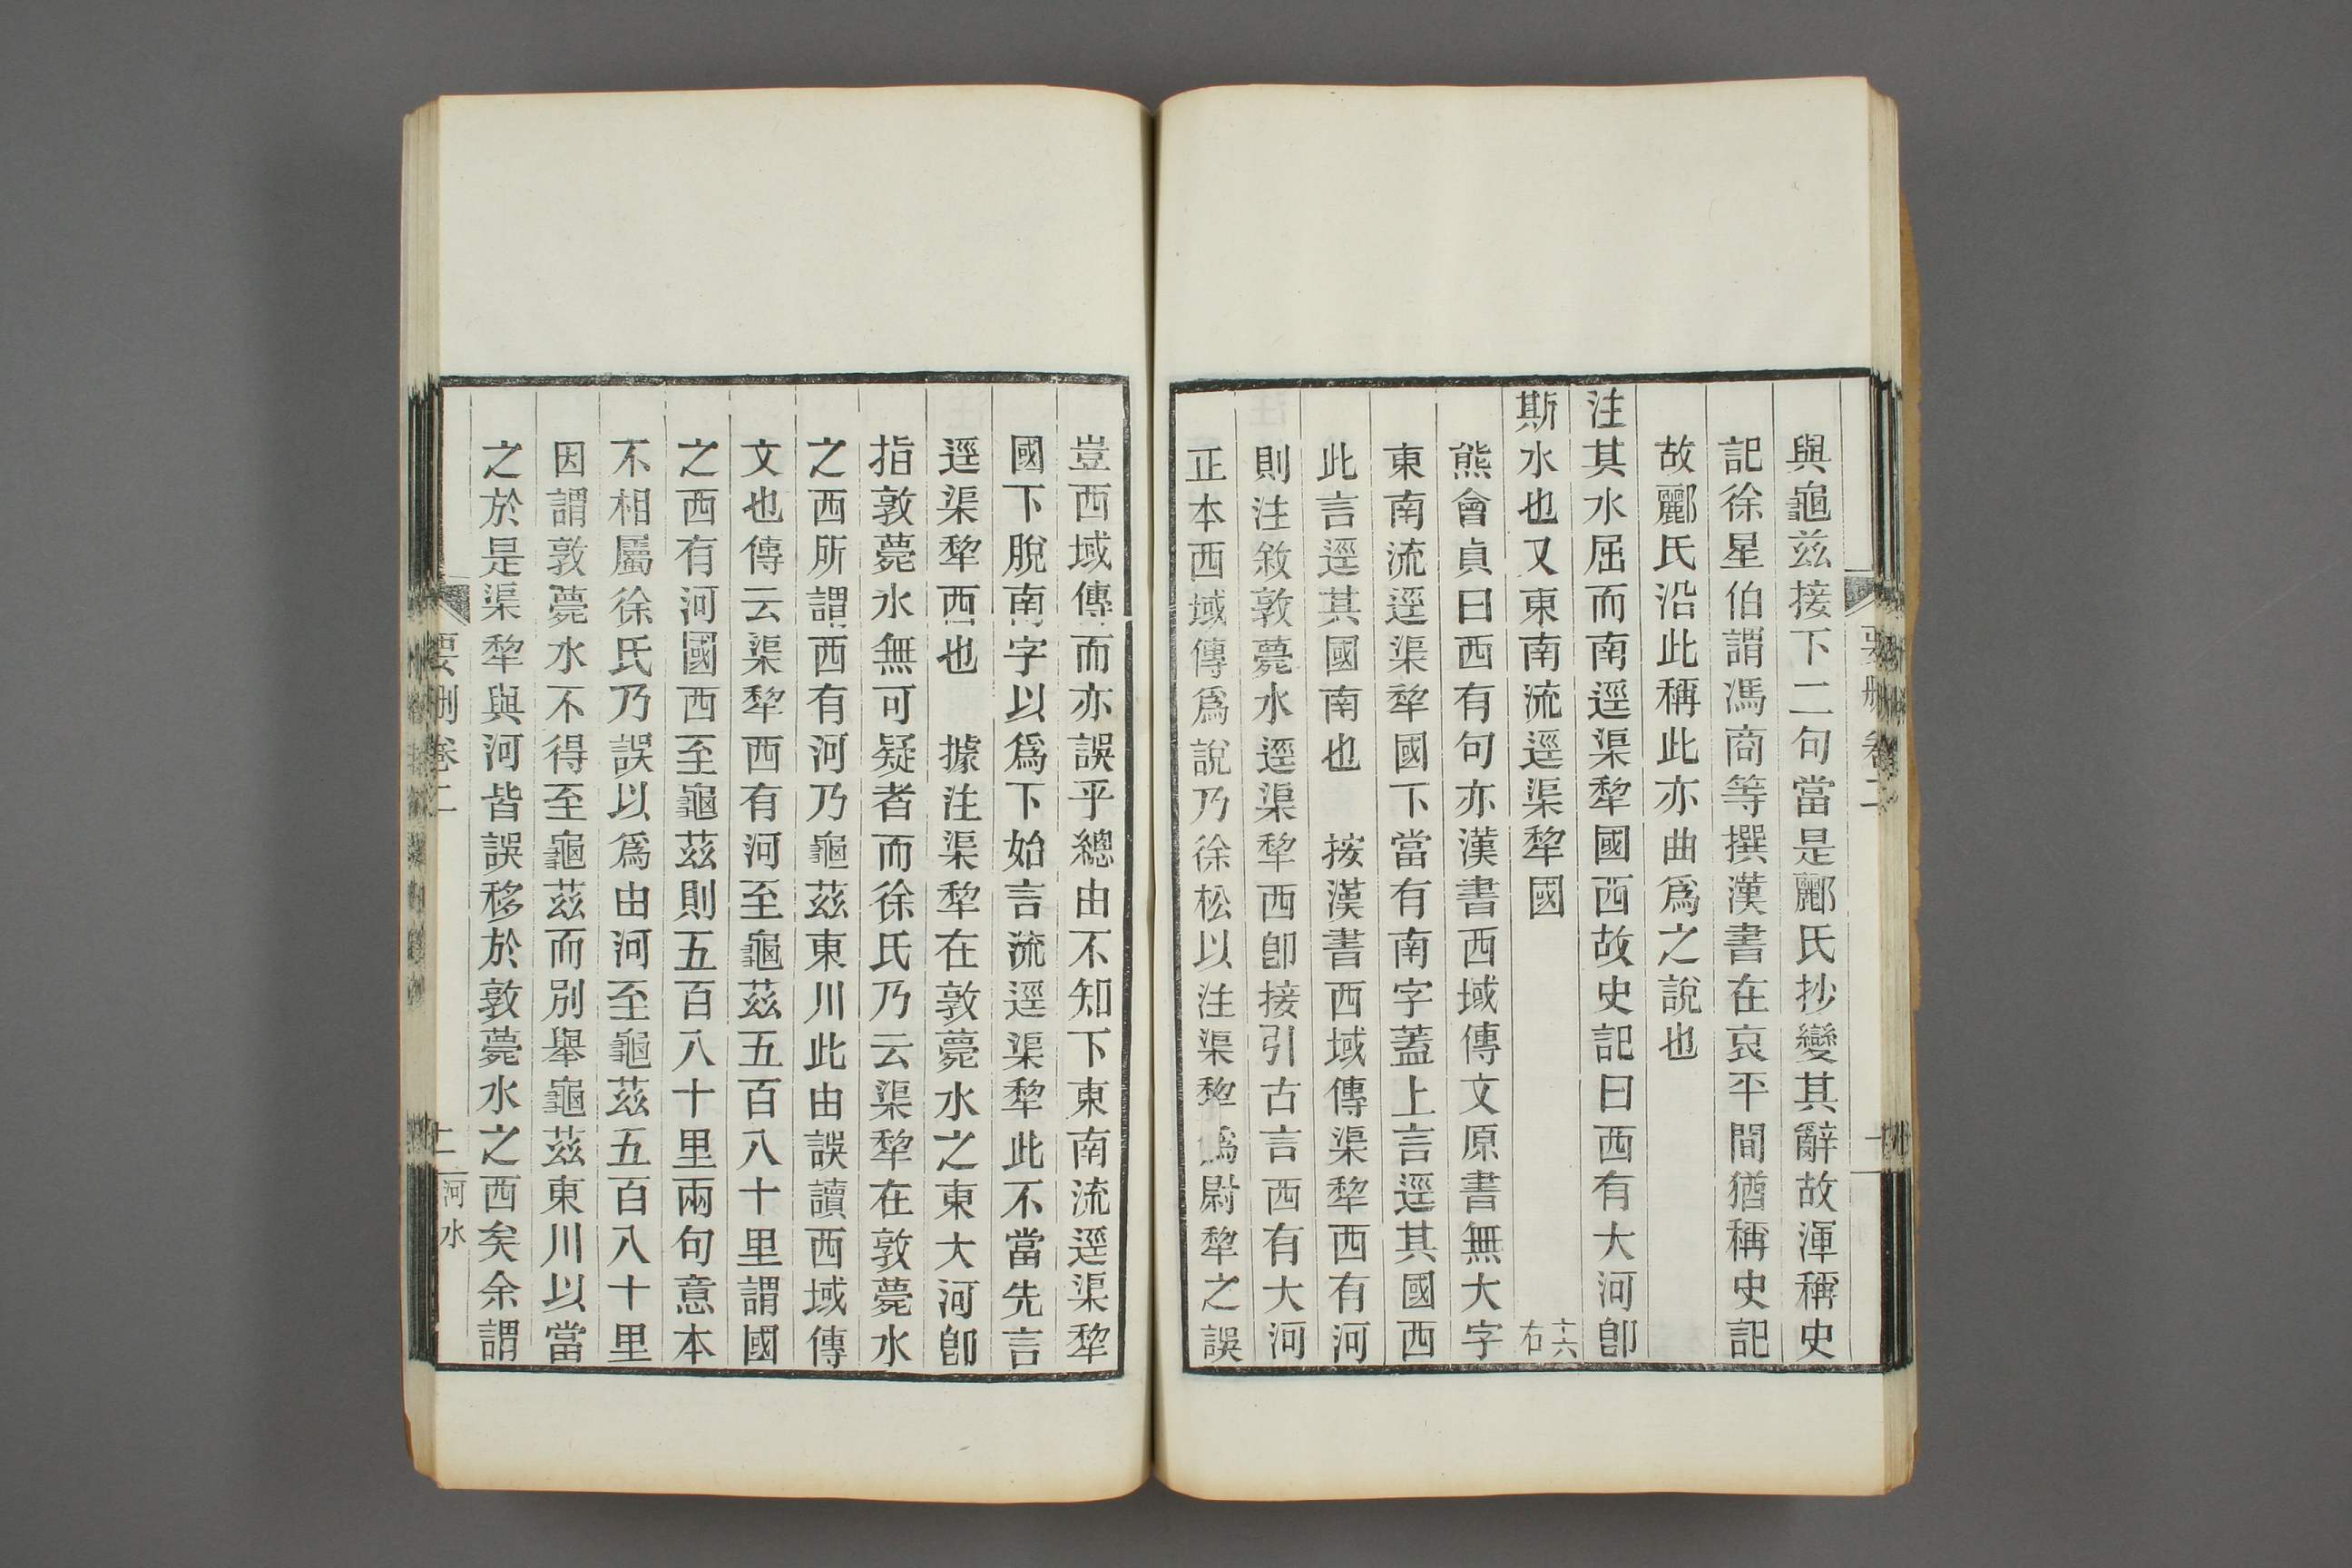 與龜茲接下二句當是酈氏抄變其辭故渾稱史
記徐星伯謂馮商等撰漢書在哀平間猶稱史記
故酈氏沿此稱此亦曲爲之說也
注其水屈而南逕渠犂國西故史記曰西有大河卽
斯水也又東南流逕渠犂國
十六
右
熊會貞曰西有句亦漢書西域傳文原書無大字
東南流逕渠犂國下當有南字蓋上言逕其國西
此言逕其國南也　按漢書西域傳渠犂西有河
則注敘敦薨水逕渠犂西卽接引古言西有大河
正本西域傳爲說乃徐松以注渠犂爲尉犂之誤
豈西域傳而亦誤乎總由不知下東南流逕渠犂
國下脫南字以爲下始言流逕渠犂此不當先言
逕渠犂西也　據注渠犂在敦薨水之東大河卽
指敦薨水無可疑者而徐氏乃云渠犂在敦薨水
之西所謂西有河乃龜茲東川此由誤讀西域傳
文也傳云渠犂西有河至龜茲五百八十里謂國
之西有河國西至龜茲則五百八十里兩句意本
不相屬徐氏乃誤以爲由河至龜茲五百八十里
因謂敦薨水不得至龜茲而別舉龜茲東川以當
之於是渠犂與河皆誤移於敦薨水之西矣余謂
要刪卷二
河水